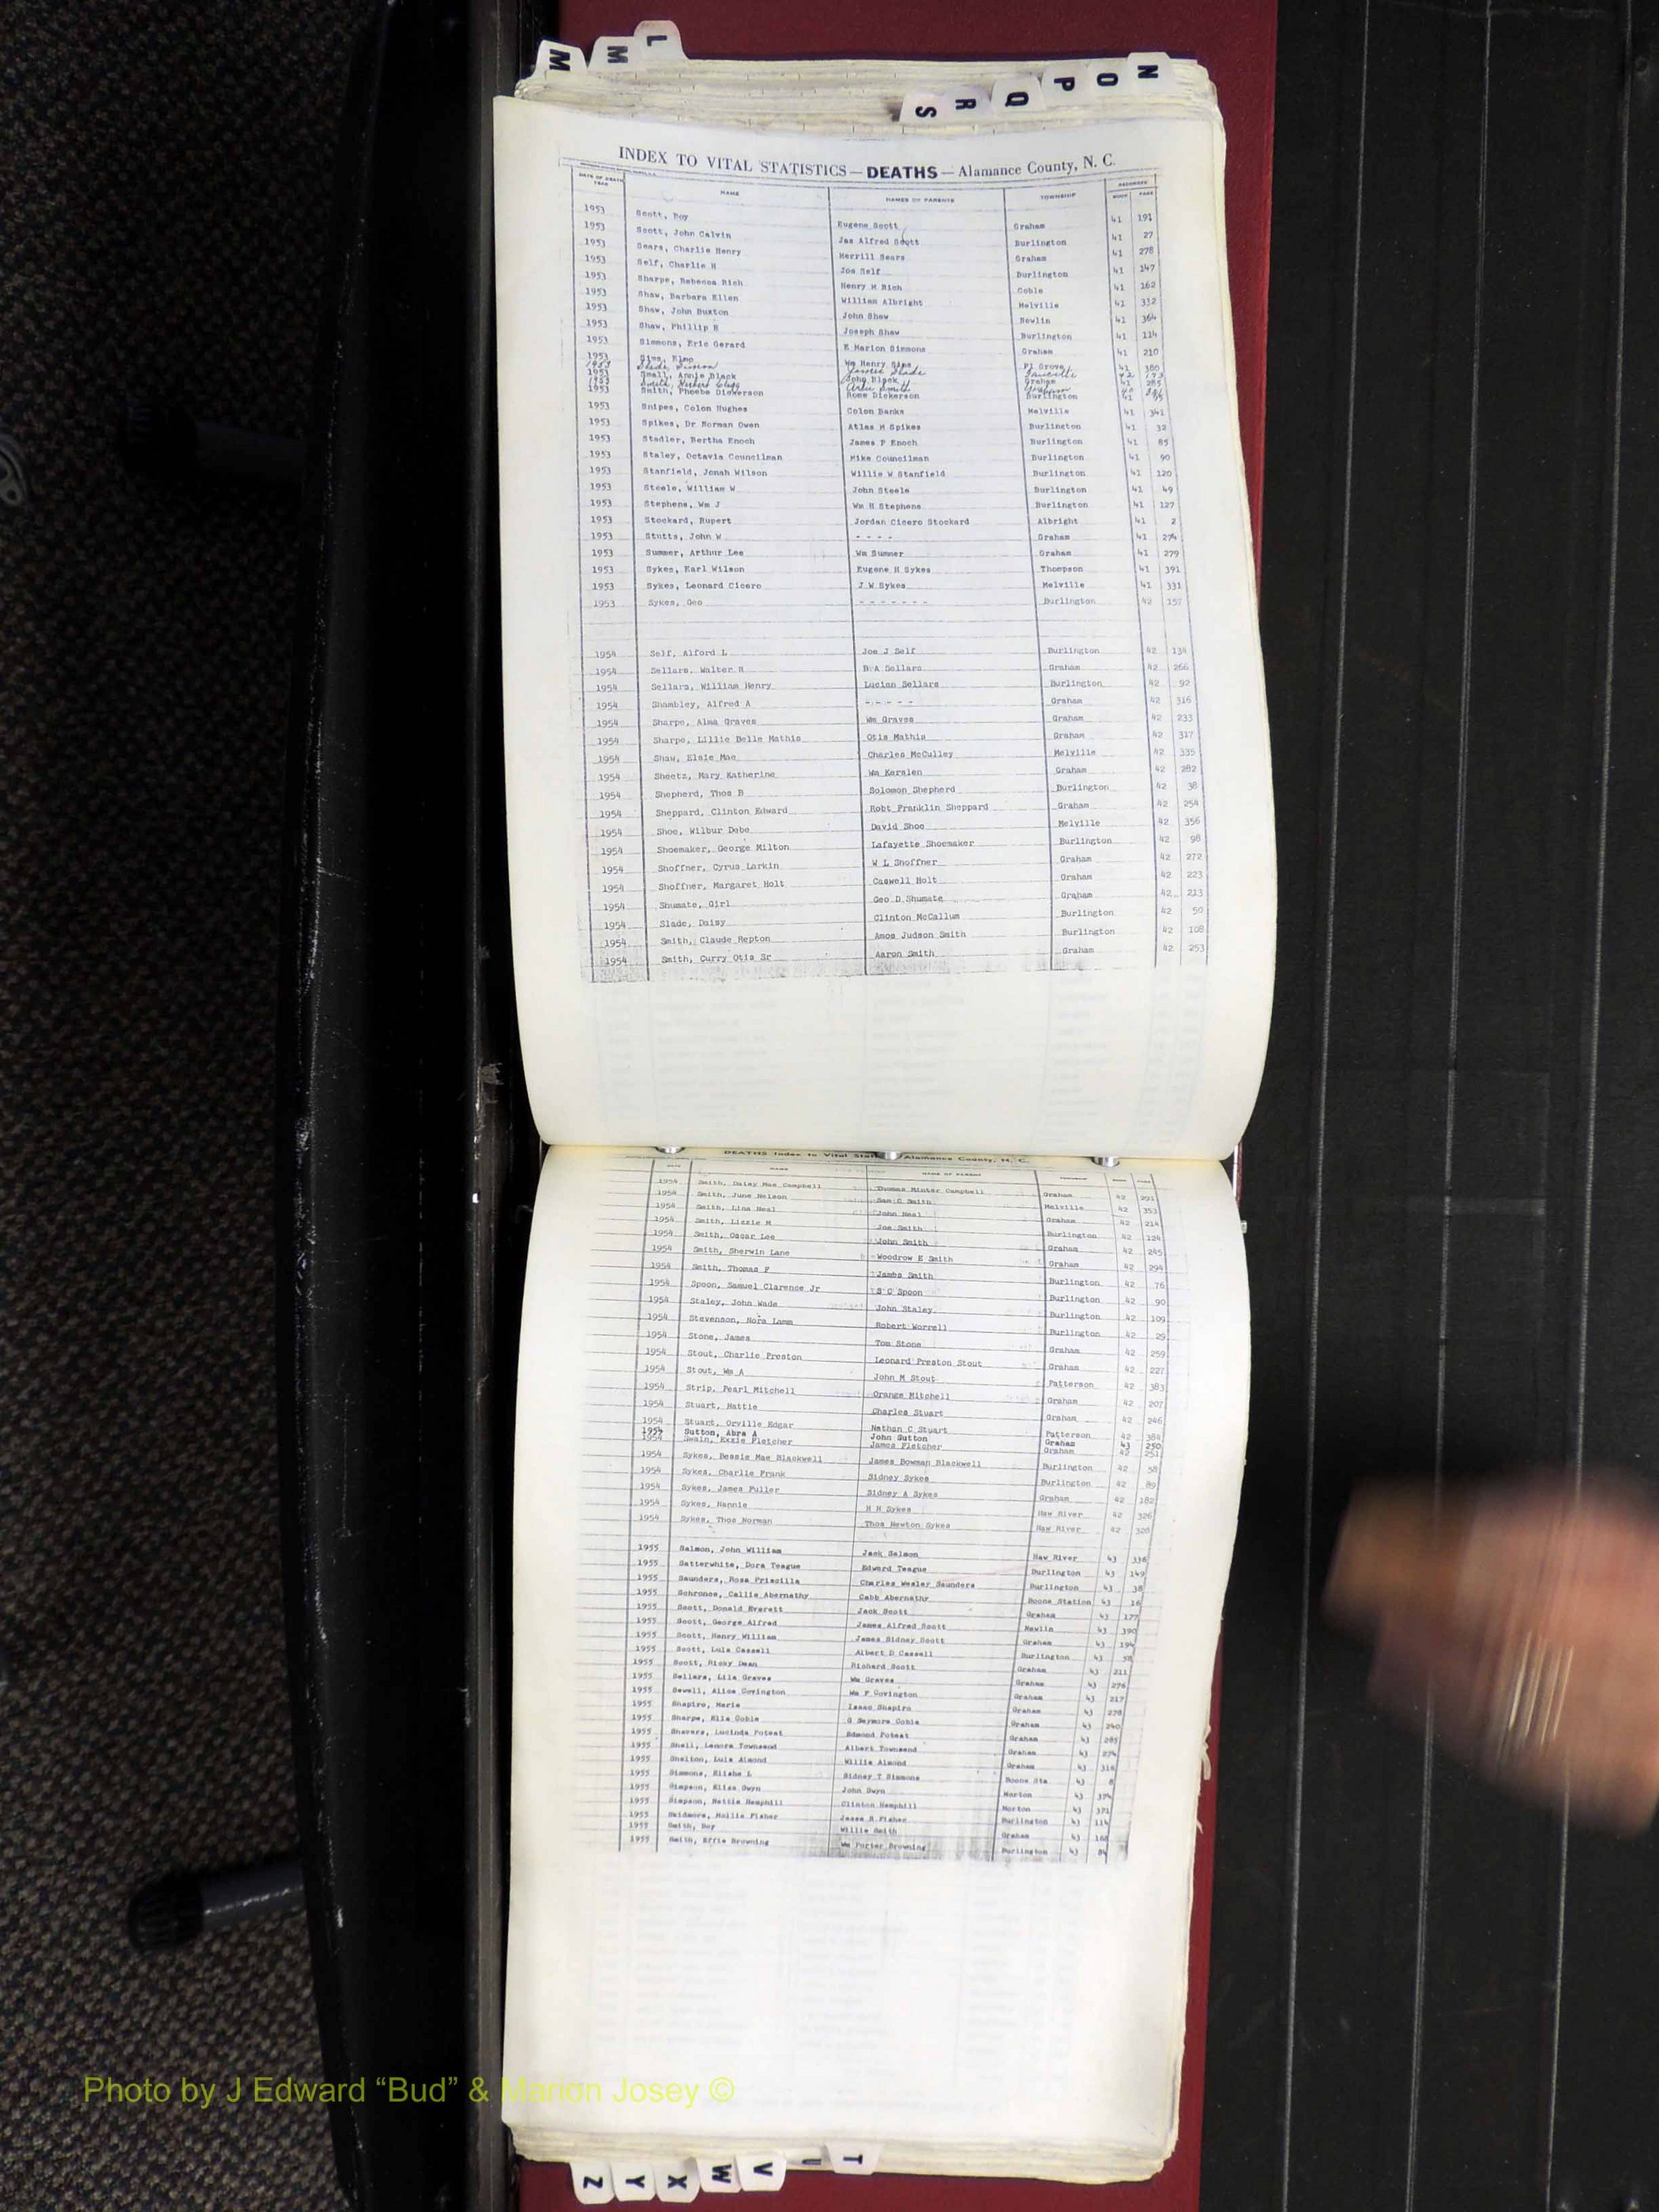 L
M
M
N
O
P
Q
R
S
INDEX TO VITAL STATISTICS — DEATHS — Alamance County, N. C.
DATE OF DEATH YEAR NAME NAMES OF PARENTS TOWNSHIP RECORDED BOOK PAGE
1953 Scott, Boy Eugene Scott Graham 41 191
1953 Scott, John Calvin Jas Alfred Scott Burlington 41 27
1953 Sears, Charlie Henry Merrill Sears Graham 41 278
1953 Self, Charlie H Joe Self Burlington 41 147
1953 Sharpe, Rebecca Rich Henry M Rich Coble 41 162
1953 Shaw, Barbara Ellen William Albright Melville 41 332
1953 Shaw, John Buxton John Shaw Newlin 41 364
1953 Shaw, Phillip B Joseph Shaw Burlington 41 114
1953 Simmons, Eric Gerard E Marion Simmons Graham 41 210
1953 Sims, Elmo Wm Henry Sims Pl Grove 41 380
1953 Slade, James Slade Faucette 42 193
1953 Small, Annie Black John Black Graham 41 285
1953 Smith, Herbert Clegg Smith Graham
1953 Smith, Phoebe Dickerson Rome Dickerson Burlington 41 95
1953 Snipes, Colon Hughes Colon Banks Melville 41 341
1953 Spikes, Dr Norman Owen Atlas M Spikes Burlington 41 32
1953 Stadler, Bertha Enoch James P Enoch Burlington 41 85
1953 Staley, Octavia Councilman Mike Councilman Burlington 41 90
1953 Stanfield, Jonah Wilson Willie W Stanfield Burlington 41 120
1953 Steele, William W John Steele Burlington 41 49
1953 Stephens, Wm J Wm H Stephens Burlington 41 127
1953 Stockard, Rupert Jordan Cicero Stockard Albright 41 2
1953 Stutts, John W - - - - Graham 41 274
1953 Summer, Arthur Lee Wm Sumner Graham 41 279
1953 Sykes, Earl Wilson Eugene H Sykes Thompson 41 391
1953 Sykes, Leonard Cicero J W Sykes Melville 41 331
1953 Sykes, Geo - - - - - - - Burlington 42 157
1954 Self, Alford L Joe J Self Burlington 42 134
1954 Sellars, Walter H B A Sellars Graham 42 266
1954 Sellars, William Henry Lucian Sellars Burlington 42 92
1954 Shambley, Alfred A - - - - - Graham 42 316
1954 Sharpe, Alma Graves Wm Graves Graham 42 233
1954 Sharpe, Lillie Belle Mathis Otis Mathis Graham 42 317
1954 Shaw, Elsie Mae Charles McCulley Melville 42 335
1954 Sheetz, Mary Katherine Wm Kernlen Graham 42 282
1954 Shepherd, Thos B Solomon Shepherd Burlington 42 38
1954 Sheppard, Clinton Edward Robt Franklin Sheppard Graham 42 254
1954 Shoe, Wilbur Debe David Shoe Melville 42 356
1954 Shoemaker, George Milton Lafayette Shoemaker Burlington 42 98
1954 Shoffner, Cyrus Larkin W L Shoffner Graham 42 272
1954 Shoffner, Margaret Holt Caswell Holt Graham 42 223
1954 Shumate, Girl Geo D Shumate Graham 42 213
1954 Slade, Daisy Clinton McCallum Burlington 42 50
1954 Smith, Claude Repton Amos Judson Smith Burlington 42 108
1954 Smith, Curry Otis Sr Aaron Smith Graham 42 253
DEATHS Index to Vital Alamance County, N. C.
DATE NAME NAME OF PARENT TOWNSHIP BOOK PAGE
1954 Smith, Daisy Mae Campbell Thomas Minter Campbell Graham 42 291
1954 Smith, June Nelson Sam C Smith Melville 42 353
1954 Smith, Lina Neal John Neal Graham 42 214
1954 Smith, Lizzie M Joe Smith Burlington 42 124
1954 Smith, Oscar Lee John Smith Graham 42 245
1954 Smith, Sherwin Lane Woodrow E Smith Graham 42 294
1954 Smith, Thomas F James Smith Burlington 42 76
1954 Spoon, Samuel Clarence Jr S C Spoon Burlington 42 90
1954 Staley, John Wade John Staley Burlington 42 109
1954 Stevenson, Nora Lamm Robert Worrell Burlington 42 29
1954 Stone, James Tom Stone Graham 42 259
1954 Stout, Charlie Preston Leonard Preston Stout Graham 42 227
1954 Stout, Wm A John M Stout Patterson 42 383
1954 Strip, Pearl Mitchell Orange Mitchell Graham 42 207
1954 Stuart, Hattie Charles Stuart Graham 42 246
1954 Stuart, Orville Edgar Nathan C Stuart Patterson 42 384
1954 Sutton, Abra A John Sutton Graham 43 250
1954 Swain, Exzie Fletcher James Fletcher Graham 42 251
1954 Sykes, Bessie Mae Blackwell James Bowman Blackwell Burlington 42 58
1954 Sykes, Charlie Frank Sidney Sykes Burlington 42 89
1954 Sykes, James Fuller Sidney A Sykes Graham 42 182
1954 Sykes, Nannie H H Sykes Haw River 42 326
1954 Sykes, Thos Norman Thos Newton Sykes Haw River 42 320
1955 Salmon, John William Jack Salmon Haw River 43 336
1955 Satterwhite, Dora Teague Edward Teague Burlington 43 149
1955 Saunders, Rosa Priscilla Charles Wesley Saunders Burlington 43 38
1955 Schronce, Callie Abernathy Cabb Abernathy Boone Station 43 16
1955 Scott, Donald Everett Jack Scott Graham 43 177
1955 Scott, George Alfred James Alfred Scott Newlin 43 390
1955 Scott, Henry William James Sidney Scott Graham 43 194
1955 Scott, Lula Cassell Albert D Cassell Burlington 43 58
1955 Scott, Ricky Dean Richard Scott Graham 43 211
1955 Sellars, Lila Graves Wm Graves Graham 43 276
1955 Sewell, Alice Covington Wm F Covington Graham 43 217
1955 Shapiro, Marie Isaac Shapiro Graham 43 278
1955 Sharpe, Ella Coble G Seymore Coble Graham 43 240
1955 Shavers, Lucinda Poteat Edmond Poteat Graham 43 285
1955 Shell, Lenora Townsend Albert Townsend Graham 43 274
1955 Shelton, Lula Almond Willie Almond Graham 43 318
1955 Simmons, Elisha L Sidney T Simmons Boone Sta 43 8
1955 Simpson, Eliza Gwyn John Gwyn Morton 43 374
1955 Simpson, Nettie Hemphill Clinton Hemphill Morton 43 371
1955 Skidmore, Mollie Fisher Jesse R Fisher Burlington 43 114
1955 Smith, Boy Willie Smith Graham 43 168
1955 Smith, Effie Browning Wm Porter Browning Burlington 43 84
Photo by J Edward “Bud” & Marion Josey ©
T
U
V
W
X
Y
Z